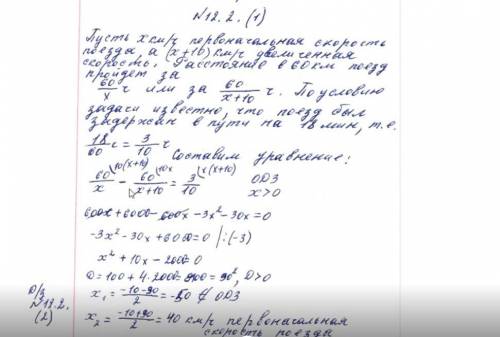 №12.2.(1)
Пусть x км/ч первоначальная скорость
поезда, а (x+10) км/ч увеличенная
скорость. Расстояние в 60 км поезд
пройдет за
60/x ч или за 60/x+10 ч. По условию
задачи известно, что поезд был
задержан в пути на 18 мин, т.е.
18/60 ч = 3/10 ч
Составим уравнение:
60/x \10(x+10) - 60/x+10 \10x = 3/10 \x(x+10) ОДЗ
x>0
600x+6000-600x-3x²-30x=0
-3x²-30x+6000=0 |:(-3)
x²+10x-2000=0
D=100+4·2000=8100=90², D>0
x₁=-10-90/2=-50 ∉ ОДЗ
x₂=-10+90/2=40 км/ч первоначальная
скорость поезда
D/з
№12.2.
(2)